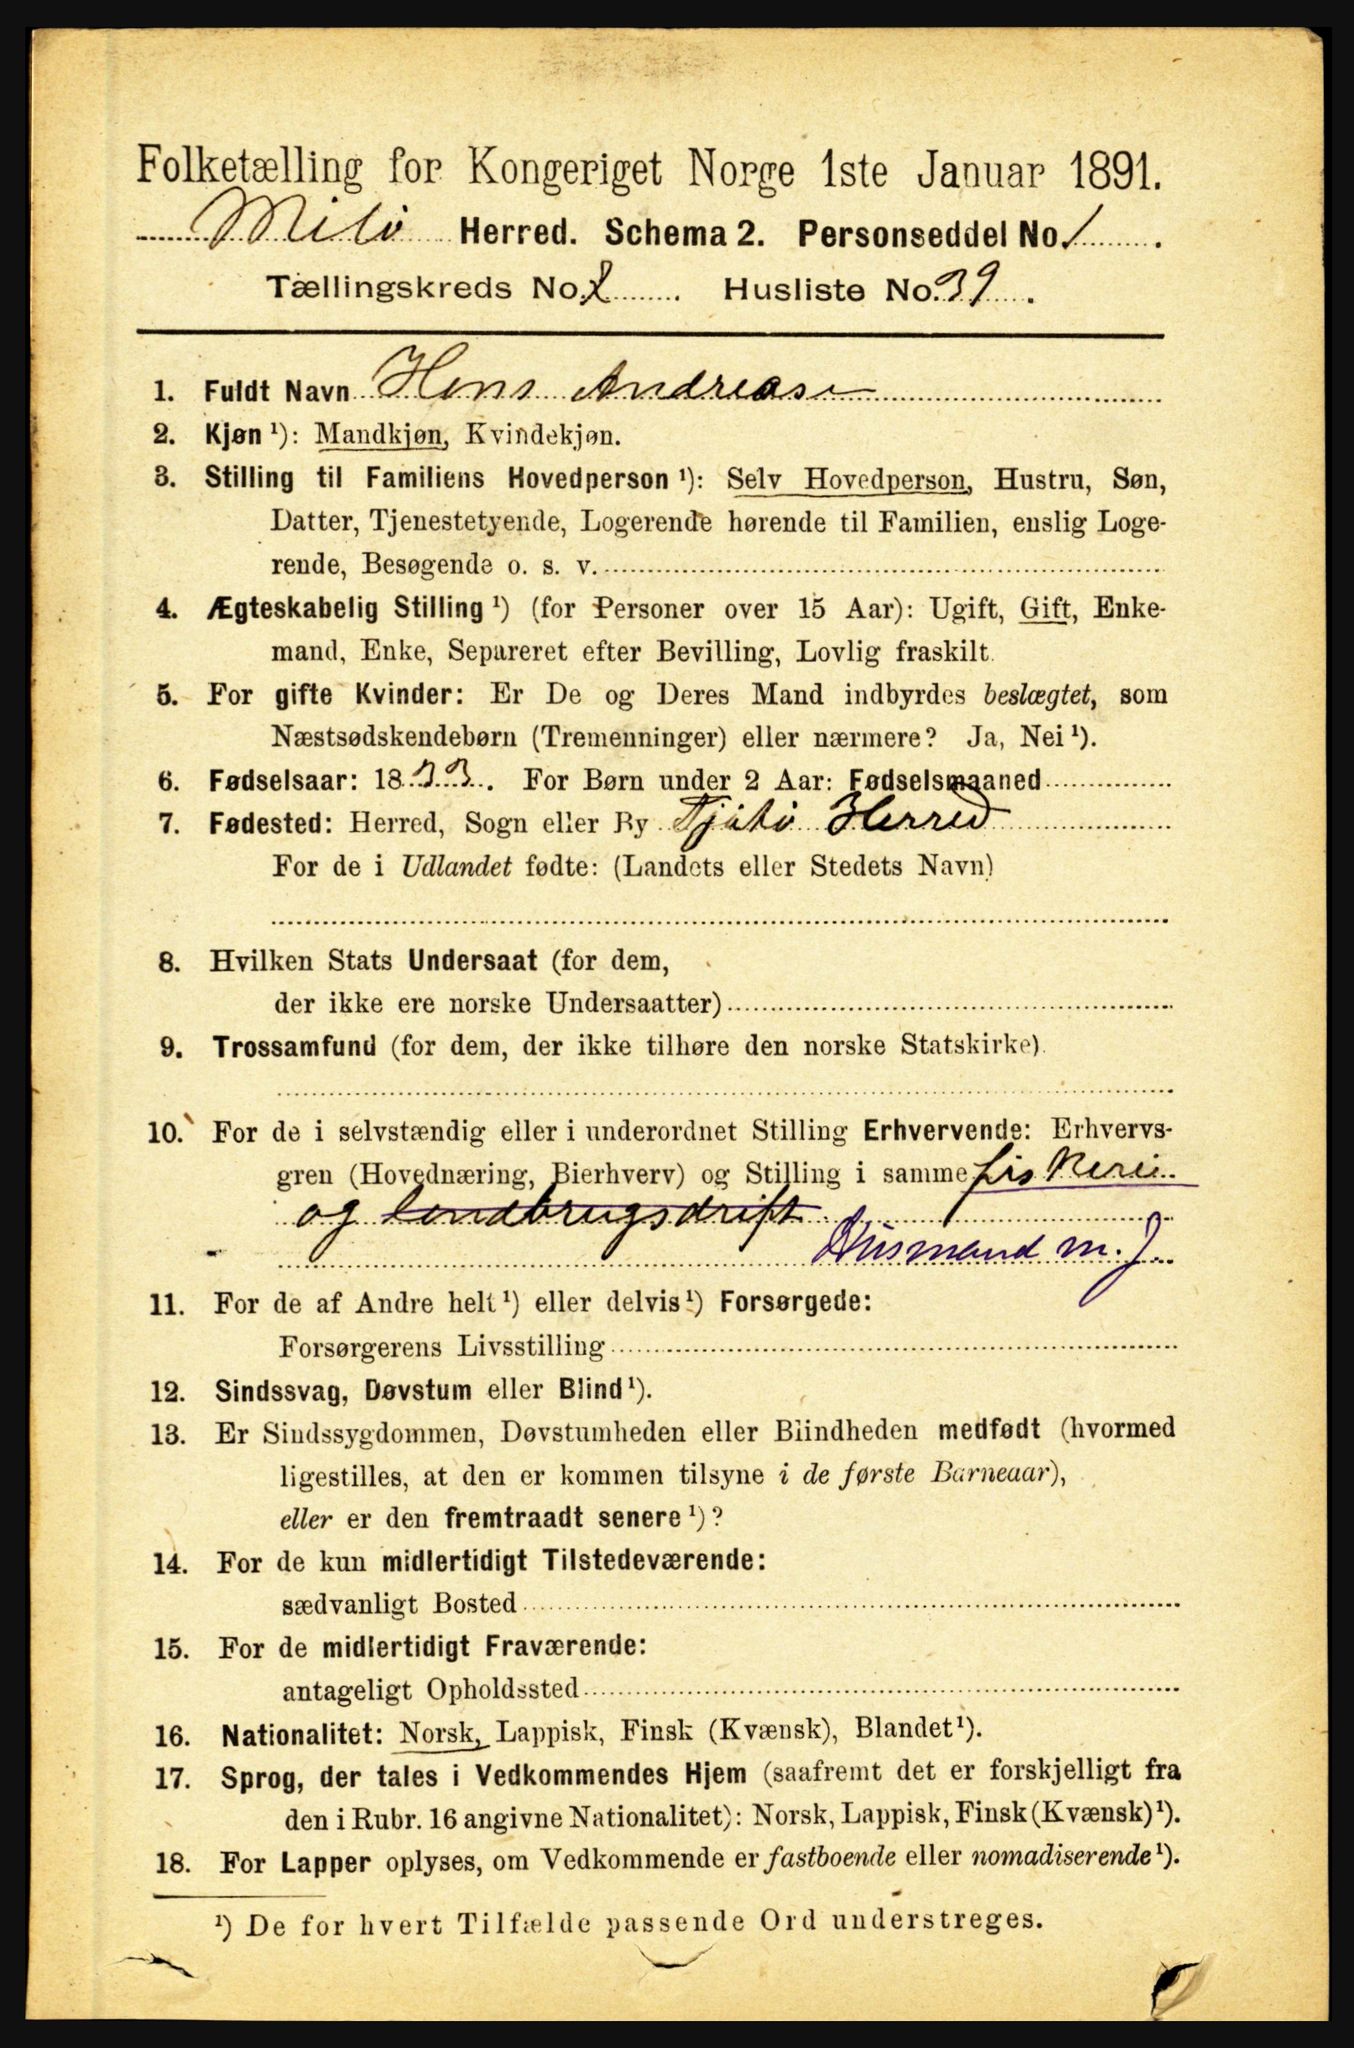 Folketælling for Kongeriget Norge 1ste Januar 1891.
Herred. Schema 2. Personseddel No. 1.
Tællingskreds No. 2. Husliste No. 39.
1. Fuldt Navn Hans Andreas
2. Kjøn ¹): Mandkjøn, Kvindekjøn.
3. Stilling til Familiens Hovedperson ¹): Selv Hovedperson, Hustru, Søn,
Datter, Tjenestetyende, Logerende hørende til Familien, enslig Loge-
rende, Besøgende o. s. v.
4. Ægteskabelig Stilling ¹) (for Personer over 15 Aar): Ugift, Gift, Enke-
mand, Enke, Separeret efter Bevilling, Lovlig fraskilt.
5. For gifte Kvinder: Er De og Deres Mand indbyrdes beslægtet, som
Næstsødskendebørn (Tremenninger) eller nærmere? Ja, Nei ¹).
6. Fødselsaar: 1833. For Børn under 2 Aar: Fødselsmaaned
7. Fødested: Herred, Sogn eller By Tjøtø Herred
For de i Udlandet fødte: (Landets eller Stedets Navn)
8. Hvilken Stats Undersaat (for dem,
der ikke ere norske Undersaatter)
9. Trossamfund (for dem, der ikke tilhøre den norske Statskirke).
10. For de i selvstændig eller i underordnet Stilling Erhvervende: Erhvervs-
gren (Hovednæring, Bierhverv) og Stilling i samme fiskerie
og landbrugsdrift
Husmand m. J.
11. For de af Andre helt ¹) eller delvis ¹) Forsørgede:
Forsørgerens Livsstilling
12. Sindssvag, Døvstum eller Blind ¹).
13. Er Sindssygdommen, Døvstumheden eller Blindheden medfødt (hvormed
ligestilles, at den er kommen tilsyne i de første Barneaar),
eller er den fremtraadt senere ¹)?
14. For de kun midlertidigt Tilstedeværende:
sædvanligt Bosted
15. For de midlertidigt Fraværende:
antageligt Opholdssted
16. Nationalitet: Norsk, Lappisk, Finsk (Kvænsk), Blandet ¹).
17. Sprog, der tales i Vedkommendes Hjem (saafremt det er forskjelligt fra
den i Rubr. 16 angivne Nationalitet): Norsk, Lappisk, Finsk (Kvænsk) ¹).
18. For Lapper oplyses, om Vedkommende er fastboende eller nomadiserende ¹).
¹) De for hvert Tilfælde passende Ord understreges.